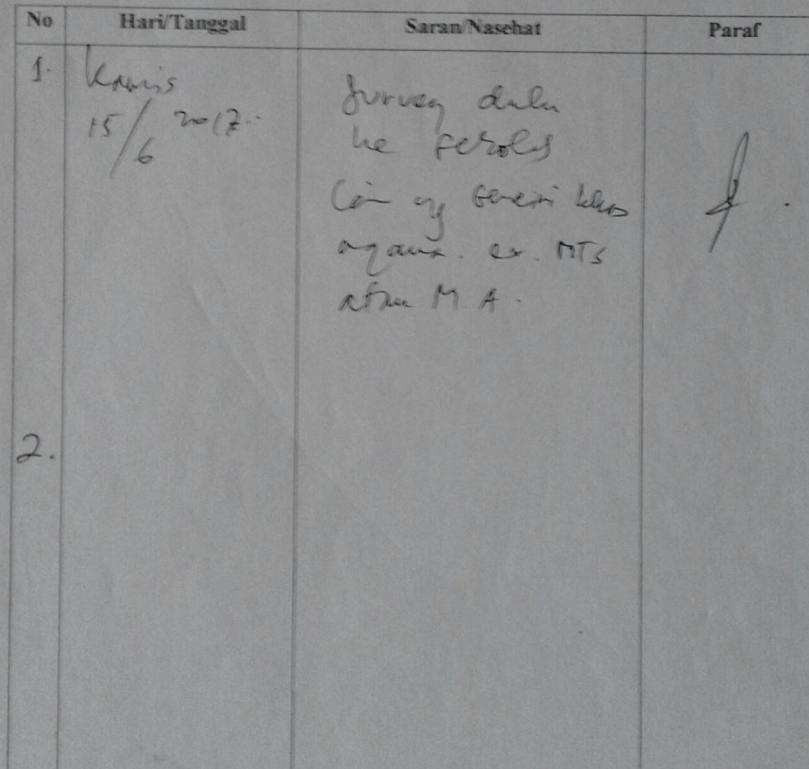 No Hari/Tanggal Saran/Nasehat Paraf
1. Kamis
15/6 2017
Survey dulu
ke sekolah
Cari yg
agama. ex. MTs
atau M.A.
2.